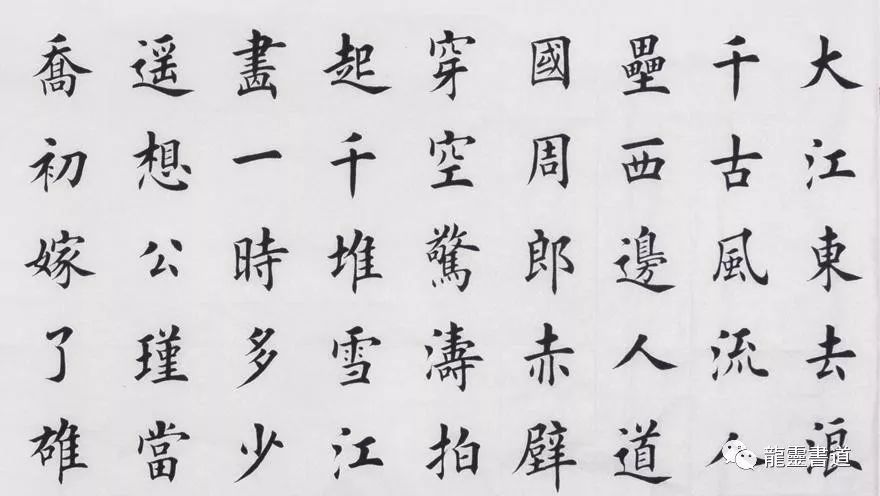 大江東去浪
千古風流人
壘西邊人道
國周郎赤壁
穿空驚濤拍
起千堆雪江
畫一時多少
遥想公瑾當
喬初嫁了雄
龍靈書道